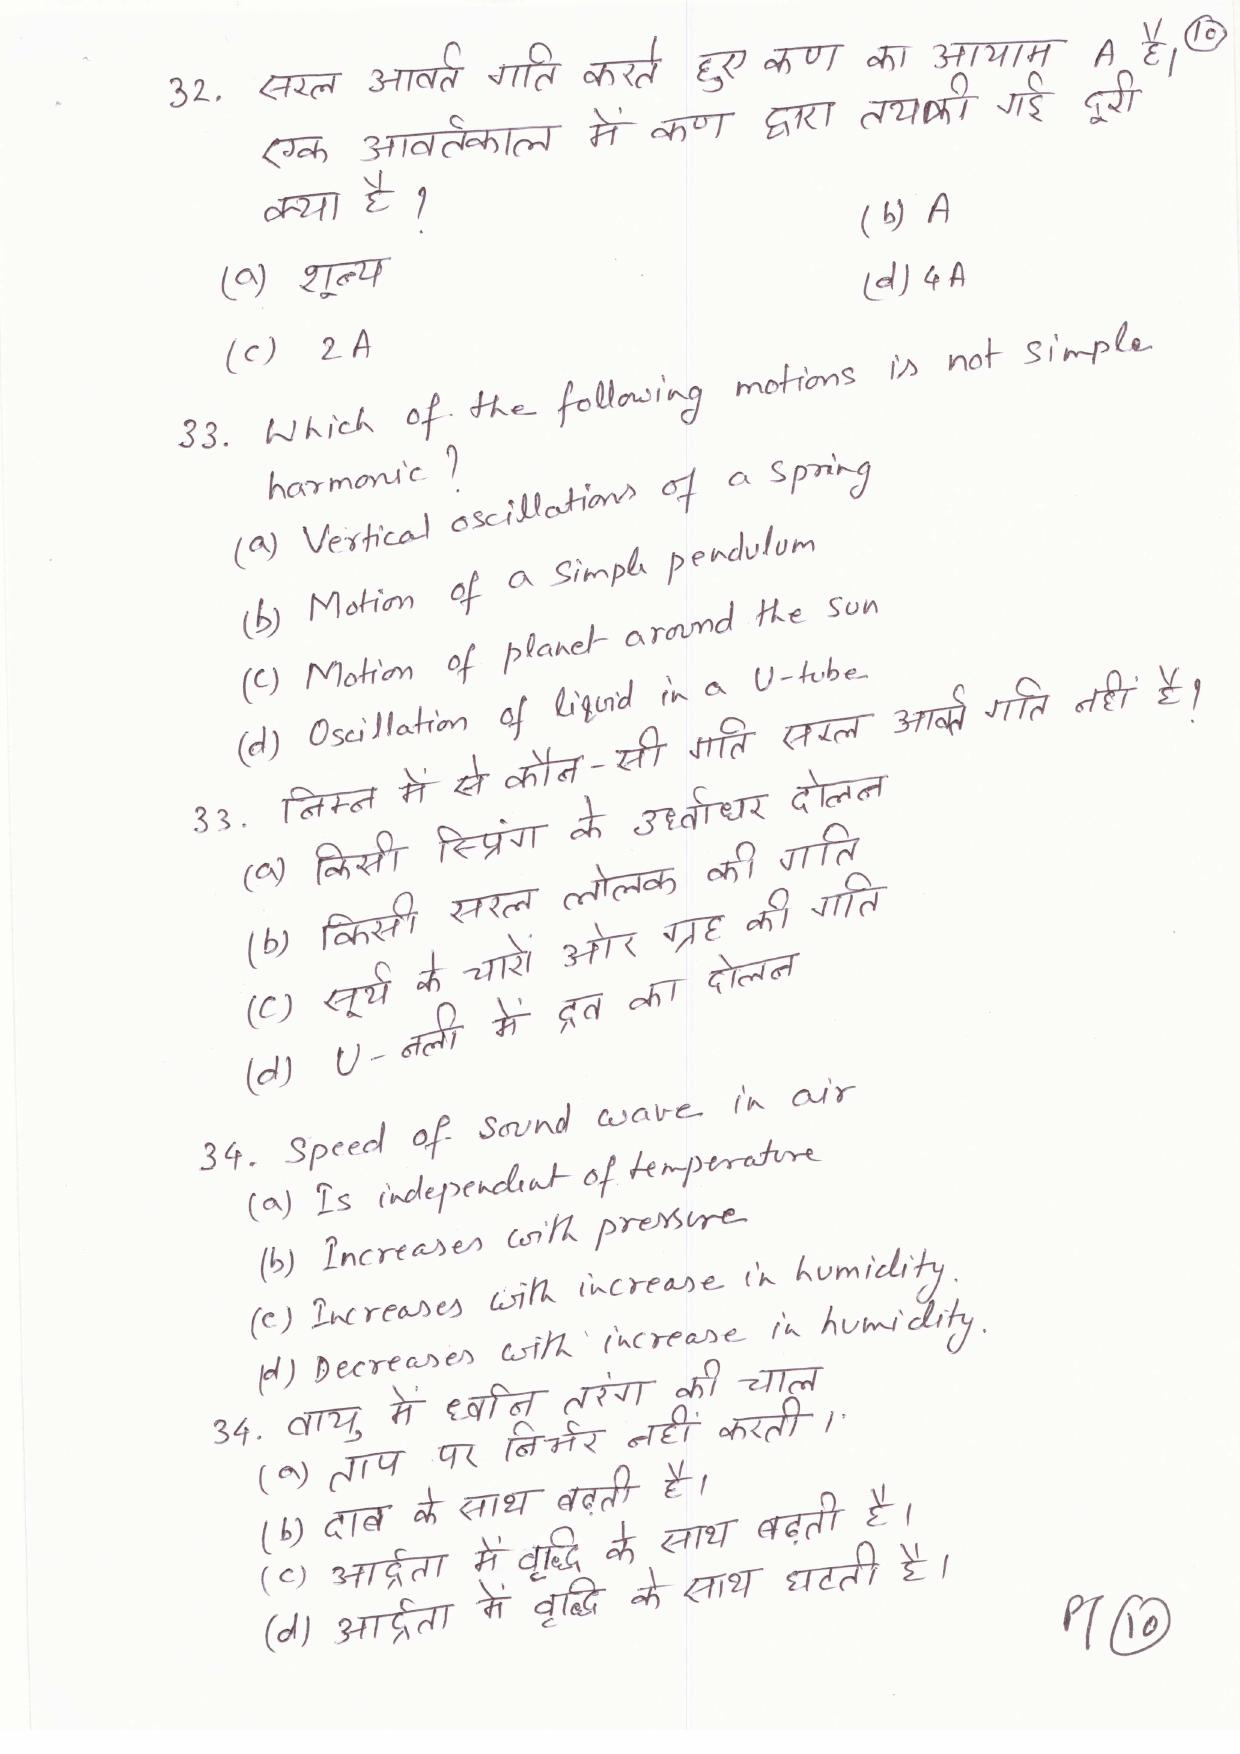 10
32. सरल आवर्त गति करते हुए कण का आयाम A है।
एक आवर्तकाल में कण द्वारा तय की गई दूरी
क्या है ?
(a) शून्य (b) A
(c) 2A (d) 4A
33. Which of the following motions is not simple
harmonic ?
(a) Vertical oscillations of a spring
(b) Motion of a simple pendulum
(c) Motion of planet around the sun
(d) Oscillation of liquid in a U-tube
33. निम्न में से कौन-सी गति सरल आवर्त गति नहीं है ?
(a) किसी स्प्रिंग के उर्ध्वाधर दोलन
(b) किसी सरल लोलक की गति
(c) सूर्य के चारों ओर ग्रह की गति
(d) U-नली में द्रव का दोलन
34. Speed of sound wave in air
(a) Is independent of temperature
(b) Increases with pressure
(c) Increases with increase in humidity.
(d) Decreases with increase in humidity.
34. वायु में ध्वनि तरंग की चाल
(a) ताप पर निर्भर नहीं करती।
(b) दाब के साथ बढ़ती है।
(c) आर्द्रता में वृद्धि के साथ बढ़ती है।
(d) आर्द्रता में वृद्धि के साथ घटती है।
PT 10